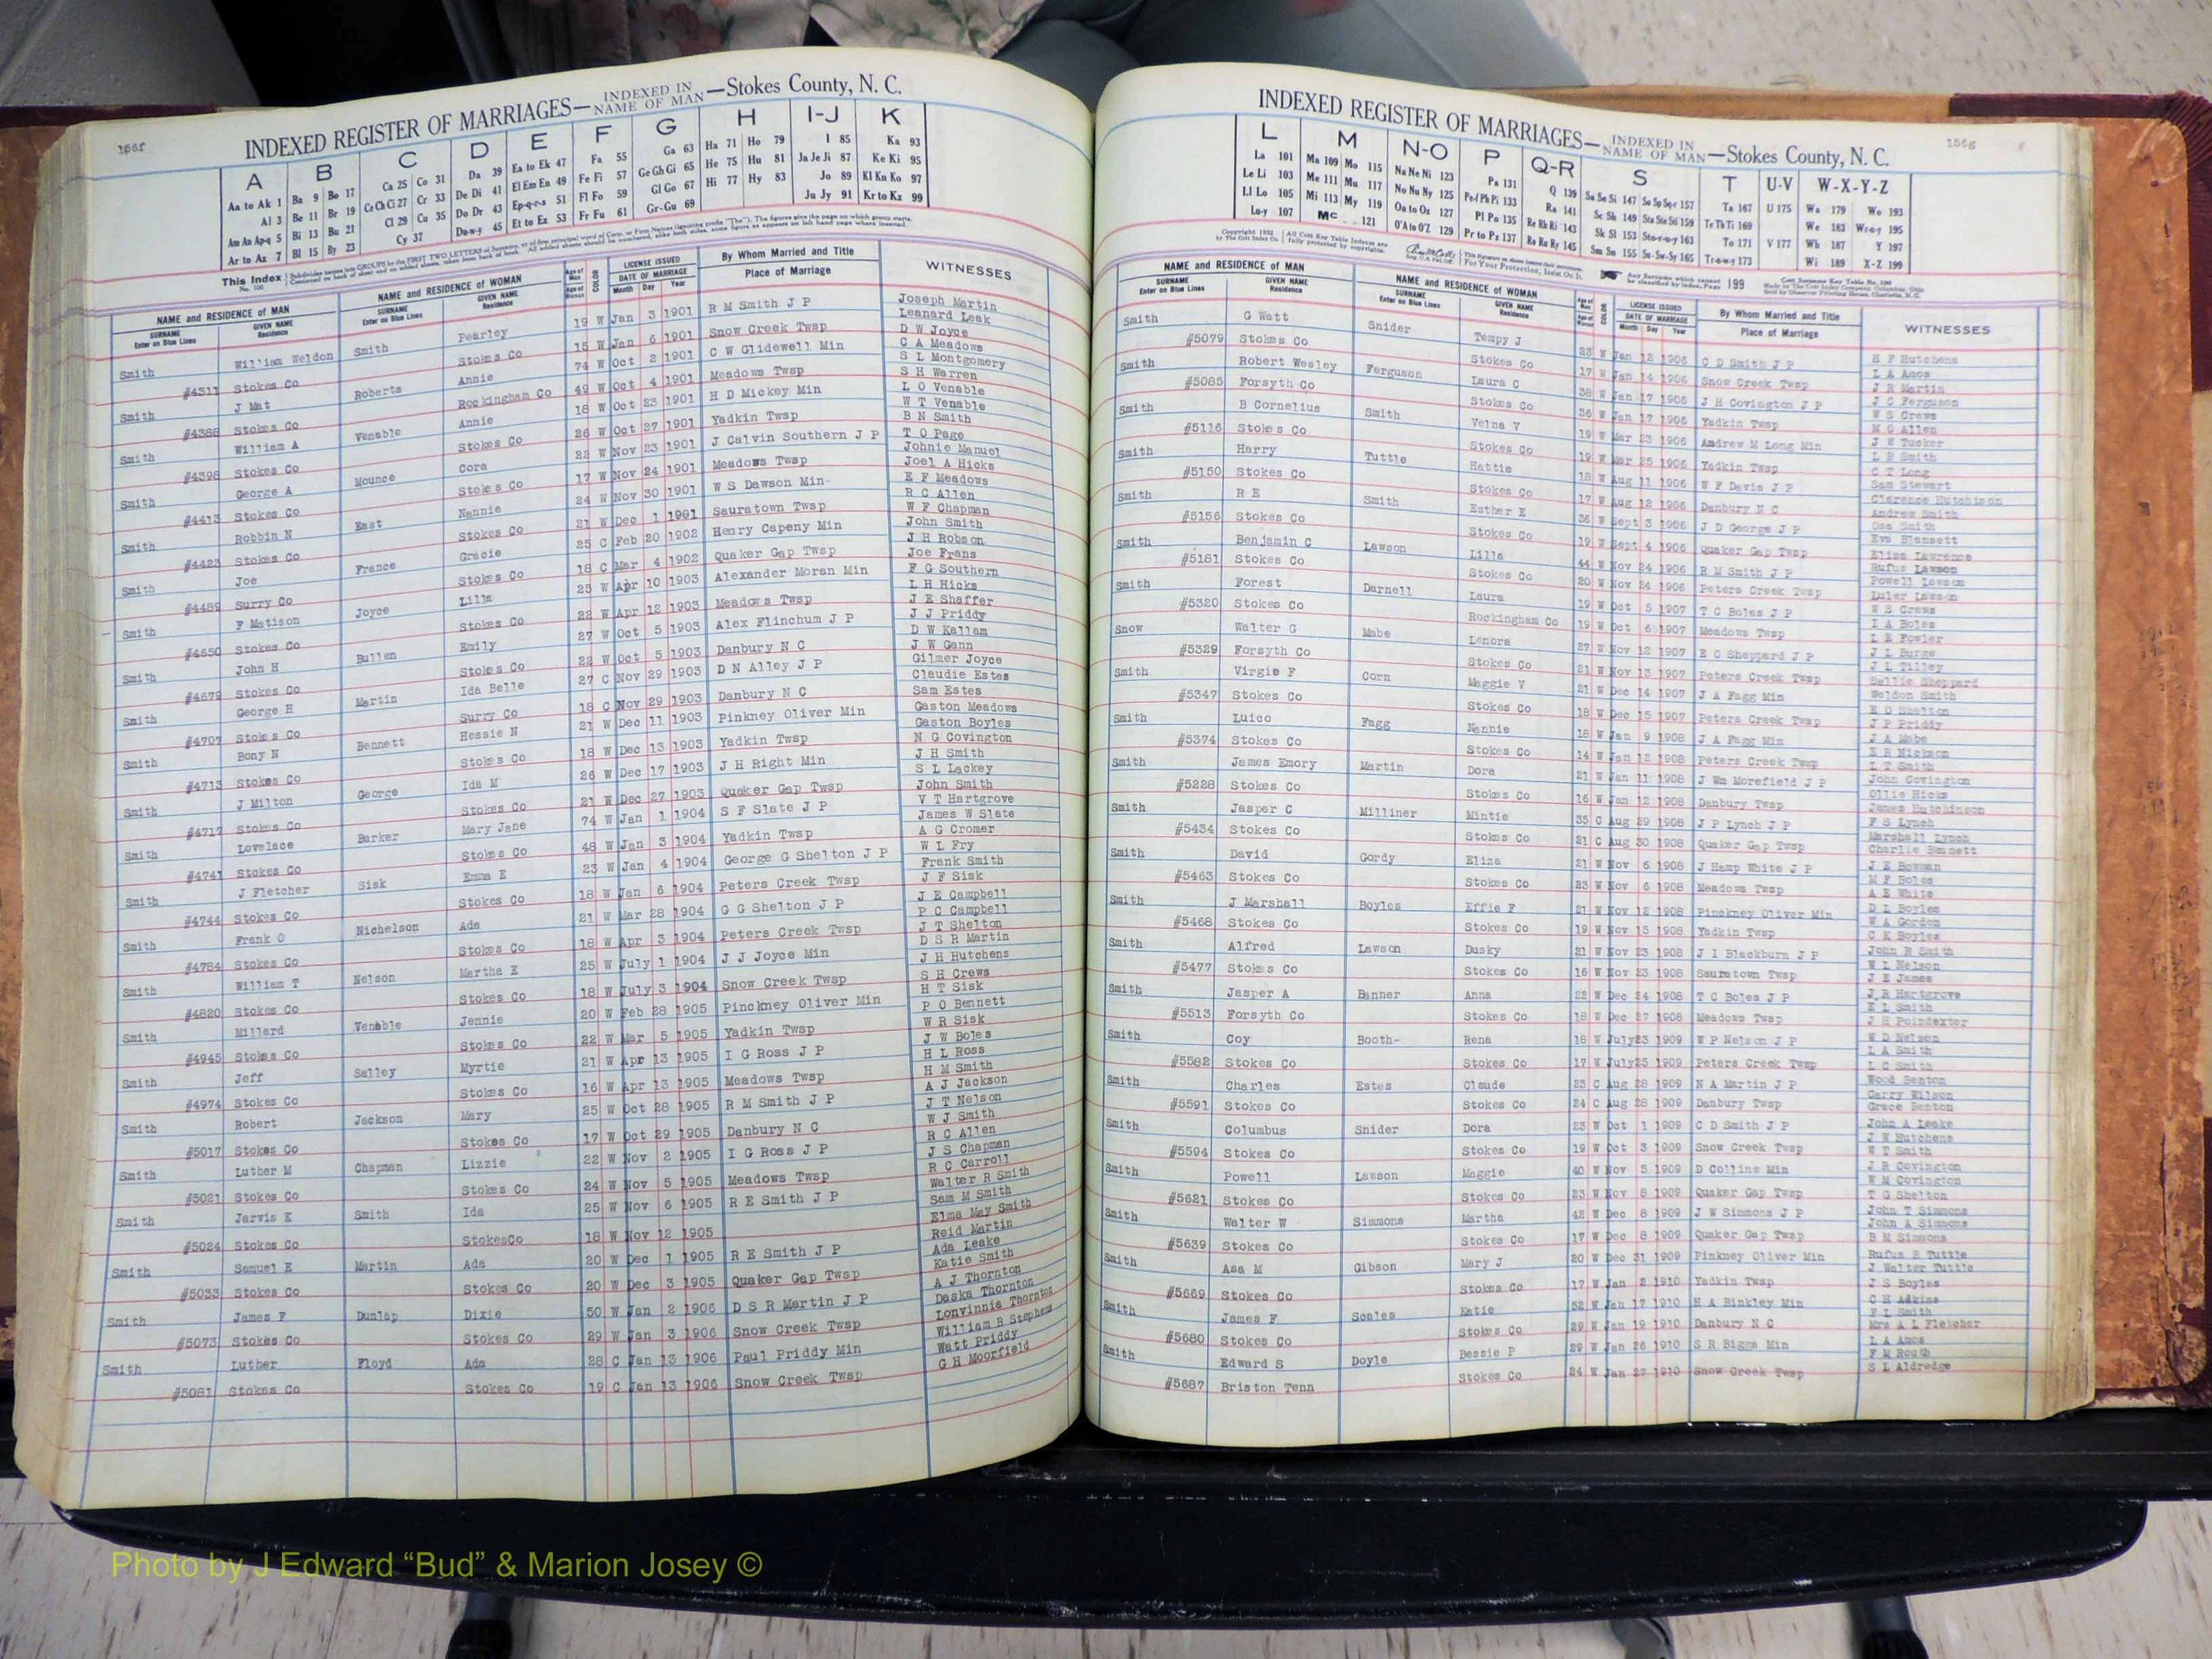 156f
INDEXED REGISTER OF MARRIAGES—INDEXED IN NAME OF MAN—Stokes County, N. C.
A B C D E F G H I-J K
Aa to Ak 1 Ba 9 Bo 17 Ca 25 Co 31 Da 39 Ea to Ek 47 Fa 55 Ga 63 Ha 71 Ho 79 I 85 Ka 93
Al 3 Be 11 Br 19 Ce Ch Ci 27 Cr 33 De Di 41 El Em En 49 Fe Fi 57 Ge Gh Gi 65 He 75 Hu 81 Ja Je Ji 87 Ke Ki 95
Am An Ap-q 5 Bi 13 Bu 21 Cl 29 Cu 35 Do Dr 43 Ep-q-r-s 51 Fl Fo 59 Gl Go 67 Hi 77 Hy 83 Jo 89 Kl Kn Ko 97
Ar to Az 7 Bl 15 By 23 Cy 37 Du-w-y 45 Et to Ez 53 Fr Fu 61 Gr-Gu 69 Ju Jy 91 Kr to Kz 99
This Index No. 100
NAME and RESIDENCE OF MAN NAME and RESIDENCE OF WOMAN Age of Man Age of Woman COLOR LICENSE ISSUED DATE OF MARRIAGE By Whom Married and Title Place of Marriage WITNESSES
SURNAME Enter on Blue Lines GIVEN NAME Residence SURNAME Enter on Blue Lines GIVEN NAME Residence Month Day Year
Smith William Weldon Smith Pearley 19 W Jan 3 1901 R M Smith J P Joseph Martin
Leanard Leak
#4311 Stokes Co Stokes Co 15 W Jan 6 1901 Snow Creek Twsp D W Joyce
Smith J Mat Roberts Annie 74 W Oct 2 1901 C W Glidewell Min C A Meadows
S L Montgomery
#4388 Stokes Co Rockingham Co 49 W Oct 4 1901 Meadows Twsp S H Warren
Smith William A Venable Annie 18 W Oct 23 1901 H D Mickey Min L O Venable
W T Venable
#4398 Stokes Co Stokes Co 26 W Oct 27 1901 Yadkin Twsp B N Smith
Smith George A Mounce Cora 22 W Nov 23 1901 J Calvin Southern J P T O Page
Johnie Manuel
#4413 Stokes Co Stokes Co 17 W Nov 24 1901 Meadows Twsp Joel A Hicks
Smith Robbin N East Nannie 24 W Nov 30 1901 W S Dawson Min- E F Meadows
R C Allen
#4423 Stokes Co Stokes Co 21 W Dec 1 1901 Sauratown Twsp W F Chapman
Smith Joe France Gracie 25 C Feb 20 1902 Henry Capeny Min John Smith
J H Robson
#4489 Surry Co Stokes Co 18 C Mar 4 1902 Quaker Gap Twsp Joe Frans
Smith F Matison Joyce Lilla 25 W Apr 10 1903 Alexander Moran Min F G Southern
L H Hicks
#4650 Stokes Co Stokes Co 22 W Apr 12 1903 Meadows Twsp J E Shaffer
Smith John H Bullen Emily 27 W Oct 5 1903 Alex Flinchum J P J J Priddy
D W Kallam
#4679 Stokes Co Stokes Co 22 W Oct 5 1903 Danbury N C J W Gann
Smith George H Martin Ida Belle 27 C Nov 29 1903 D N Alley J P Gilmer Joyce
Claudie Estes
#4707 Stokes Co Surry Co 18 C Nov 29 1903 Danbury N C Sam Estes
Smith Bony N Bennett Hessie N 21 W Dec 11 1903 Pinkney Oliver Min Gaston Meadows
Gaston Boyles
#4713 Stokes Co Stokes Co 18 W Dec 13 1903 Yadkin Twsp N G Covington
Smith J Milton George Ida M 26 W Dec 17 1903 J H Right Min J H Smith
S L Lackey
#4717 Stokes Co Stokes Co 21 W Dec 27 1903 Quaker Gap Twsp John Smith
Smith Lovelace Barker Mary Jane 74 W Jan 1 1904 S F Slate J P V T Hartgrove
James W Slate
#4741 Stokes Co Stokes Co 48 W Jan 3 1904 Yadkin Twsp A G Cromer
Smith J Fletcher Sisk Emma E 23 W Jan 4 1904 George G Shelton J P W L Fry
Frank Smith
#4744 Stokes Co Stokes Co 18 W Jan 6 1904 Peters Creek Twsp J F Sisk
Smith Frank O Nichelson Ada 21 W Mar 28 1904 G G Shelton J P J E Campbell
P C Campbell
#4784 Stokes Co Stokes Co 18 W Apr 3 1904 Peters Creek Twsp J T Shelton
Smith William T Nelson Martha E 25 W July 1 1904 J J Joyce Min D S R Martin
J H Hutchens
#4820 Stokes Co Stokes Co 18 W July 3 1904 Snow Creek Twsp S H Crews
Smith Millard Venable Jennie 20 W Feb 28 1905 Pinckney Oliver Min H T Sisk
P O Bennett
#4945 Stokes Co Stokes Co 22 W Mar 5 1905 Yadkin Twsp W R Sisk
Smith Jeff Salley Myrtie 21 W Apr 13 1905 I G Ross J P J W Boles
H L Ross
#4974 Stokes Co Stokes Co 16 W Apr 13 1905 Meadows Twsp H M Smith
Smith Robert Jackson Mary 25 W Oct 28 1905 R M Smith J P A J Jackson
J T Nelson
#5017 Stokes Co Stokes Co 17 W Oct 29 1905 Danbury N C W J Smith
Smith Luther M Chapman Lizzie 22 W Nov 2 1905 I G Ross J P R C Allen
J S Chapman
#5021 Stokes Co Stokes Co 24 W Nov 5 1905 Meadows Twsp R C Carroll
Smith Jarvis K Smith Ida 25 W Nov 6 1905 R E Smith J P Walter R Smith
Sam M Smith
#5024 Stokes Co StokesCo 18 W Nov 12 1905 Elma May Smith
Smith Samuel E Martin Ada 20 W Dec 1 1905 R E Smith J P Reid Martin
Ada Leake
#5033 Stokes Co Stokes Co 20 W Dec 3 1905 Quaker Gap Twsp Katie Smith
Smith James F Dunlap Dixie 50 W Jan 2 1906 D S R Martin J P A J Thornton
Daska Thornton
#5073 Stokes Co Stokes Co 29 W Jan 3 1906 Snow Creek Twsp Lonvinnia Thornton
Smith Luther Floyd Ada 28 C Jan 13 1906 Paul Priddy Min William R Stephens
Watt Priddy
#5081 Stokes Co Stokes Co 19 C Jan 13 1906 Snow Creek Twsp G H Moorfield
156g
INDEXED REGISTER OF MARRIAGES—INDEXED IN NAME OF MAN—Stokes County, N. C.
L M N-O P Q-R S T U-V W-X-Y-Z
La 101 Ma 109 Mo 115 Na Ne Ni 123 Pa 131 Q 139 Sa Se Si 147 So Sp Sq-r 157 Ta 167 U 175 Wa 179 Wo 193
Le Li 103 Me 111 Mu 117 No Nu Ny 125 Pe-f Ph Pi 133 Ra 141 Sc Sh 149 Sta Ste Sti 159 Te Th Ti 169 We 183 Wr-o-y 195
Ll Lo 105 Mi 113 My 119 Oa to Oz 127 Pl Po 135 Re Rh Ri 143 Sk Sl 153 Sto-r-u-y 163 To 171 V 177 Wh 187 Y 197
Lu-y 107 Mc 121 O'A to O'Z 129 Pr to Pz 137 Ro Ru Ry 145 Sm Sn 155 Su-Sw-Sy 165 Tr-u-w-y 173 Wi 189 X-Z 199
NAME and RESIDENCE OF MAN NAME and RESIDENCE OF WOMAN Age of Man Age of Woman COLOR LICENSE ISSUED DATE OF MARRIAGE By Whom Married and Title Place of Marriage WITNESSES
SURNAME Enter on Blue Lines GIVEN NAME Residence SURNAME Enter on Blue Lines GIVEN NAME Residence Month Day Year
Smith G Watt Snider Tempy J 23 W Jan 12 1906 C D Smith J P H F Hutchens
L A Amos
#5079 Stokes Co Stokes Co 17 W Jan 14 1906 Snow Creek Twsp J R Martin
Smith Robert Wesley Ferguson Laura C 38 W Jan 17 1906 J H Covington J P J C Ferguson
W S Crews
#5085 Forsyth Co Stokes Co 36 W Jan 17 1906 Yadkin Twsp M O Allen
Smith B Cornelius Smith Velna V 19 W Mar 23 1906 Andrew M Long Min J W Tucker
L B Smith
#5116 Stokes Co Stokes Co 19 W Mar 25 1906 Yadkin Twsp C T Long
Smith Harry Tuttle Hattie 18 W Aug 11 1906 W F Davis J P Sam Stewart
Clarence Hutchison
#5150 Stokes Co Stokes Co 17 W Aug 12 1906 Danbury N C Andrew Smith
Smith R E Smith Esther E 36 W Sept 3 1906 J D George J P Oss Smith
Eva Blansett
#5156 Stokes Co Stokes Co 19 W Sept 4 1906 Quaker Gap Twsp Elisa Lawrence
Smith Benjamin C Lawson Lilla 44 W Nov 24 1906 R M Smith J P Rufus Lawson
Powell Lawson
#5181 Stokes Co Stokes Co 20 W Nov 24 1906 Peters Creek Twsp Luler Lawson
Smith Forest Darnell Laura 19 W Oct 5 1907 T C Boles J P W S Crews
I A Boles
#5320 Stokes Co Rockingham Co 19 W Oct 6 1907 Meadows Twsp L E Fowler
Snow Walter G Mabe Lenora 27 W Nov 12 1907 E C Sheppard J P J L Burge
J L Tilley
#5329 Forsyth Co Stokes Co 21 W Nov 13 1907 Peters Creek Twsp Sallie Sheppard
Smith Virgie F Corn Maggie V 21 W Dec 14 1907 J A Fagg Min Weldon Smith
E O Shelton
#5347 Stokes Co Stokes Co 18 W Dec 15 1907 Peters Creek Twsp J P Priddy
Smith Luico Fagg Nannie 18 W Jan 9 1908 J A Fagg Min J A Mabe
E R Nickson
#5374 Stokes Co Stokes Co 14 W Jan 12 1908 Peters Creek Twsp L T Smith
Smith James Emory Martin Dora 21 W Jan 11 1908 J Wm Morefield J P John Covington
Ollie Hicks
#5228 Stokes Co Stokes Co 16 W Jan 12 1908 Danbury Twsp James Hutchinson
Smith Jasper C Milliner Mintie 35 C Aug 29 1908 J P Lynch J P F S Lynch
Marshall Lynch
#5434 Stokes Co Stokes Co 21 C Aug 30 1908 Quaker Gap Twsp Charlie Bennett
Smith David Gordy Eliza 21 W Nov 6 1908 J Hamp White J P J E Bowman
M F Boles
#5463 Stokes Co Stokes Co 23 W Nov 6 1908 Meadows Twsp A E White
Smith J Marshall Boyles Effie F 21 W Nov 12 1908 Pinckney Oliver Min D L Boyles
W A Gordon
#5468 Stokes Co Stokes Co 19 W Nov 15 1908 Yadkin Twsp C K Boyles
Smith Alfred Lawson Dusky 21 W Nov 23 1908 J I Blackburn J P John R Smith
W L Nelson
#5477 Stokes Co Stokes Co 16 W Nov 23 1908 Sauratown Twsp J E James
Smith Jasper A Banner Anna 22 W Dec 24 1908 T C Boles J P J R Hartgrove
E L Smith
#5513 Forsyth Co Stokes Co 18 W Dec 27 1908 Meadows Twsp J H Poindexter
Smith Coy Booth- Rena 18 W July23 1909 W P Nelson J P W D Nelson
L A Smith
#5582 Stokes Co Stokes Co 17 W July25 1909 Peters Creek Twsp L C Smith
Smith Charles Estes Claude 23 C Aug 28 1909 N A Martin J P Wood Benton
Carry Wilson
#5591 Stokes Co Stokes Co 24 C Aug 28 1909 Danbury Twsp Grace Benton
Smith Columbus Snider Dora 23 W Oct 1 1909 C D Smith J P John A Leake
J W Hutchens
#5594 Stokes Co Stokes Co 19 W Oct 3 1909 Snow Creek Twsp W T Smith
Smith Powell Lawson Maggie 40 W Nov 5 1909 D Collins Min J R Covington
W M Covington
#5621 Stokes Co Stokes Co 23 W Nov 8 1909 Quaker Gap Twsp T G Shelton
Smith Walter W Simmons Martha 42 W Dec 8 1909 J W Simmons J P John T Simmons
John A Simmons
#5639 Stokes Co Stokes Co 17 W Dec 8 1909 Quaker Gap Twsp R M Simmons
Smith Asa M Gibson Mary J 20 W Dec 31 1909 Pinkney Oliver Min Rufus B Tuttle
J Walter Tuttle
#5669 Stokes Co Stokes Co 17 W Jan 2 1910 Yadkin Twsp J S Boyles
Smith James F Scales Katie 52 W Jan 17 1910 H A Binkley Min C H Adkins
F L Smith
#5680 Stokes Co Stokes Co 29 W Jan 19 1910 Danbury N C Mrs A L Fletcher
Smith Edward S Doyle Bessie P 29 W Jan 26 1910 S R Biggs Min L A Amos
F M Routh
#5687 Briston Tenn Stokes Co 24 W Jan 27 1910 Snow Creek Twsp S L Aldredge
Photo by J Edward “Bud” & Marion Josey ©